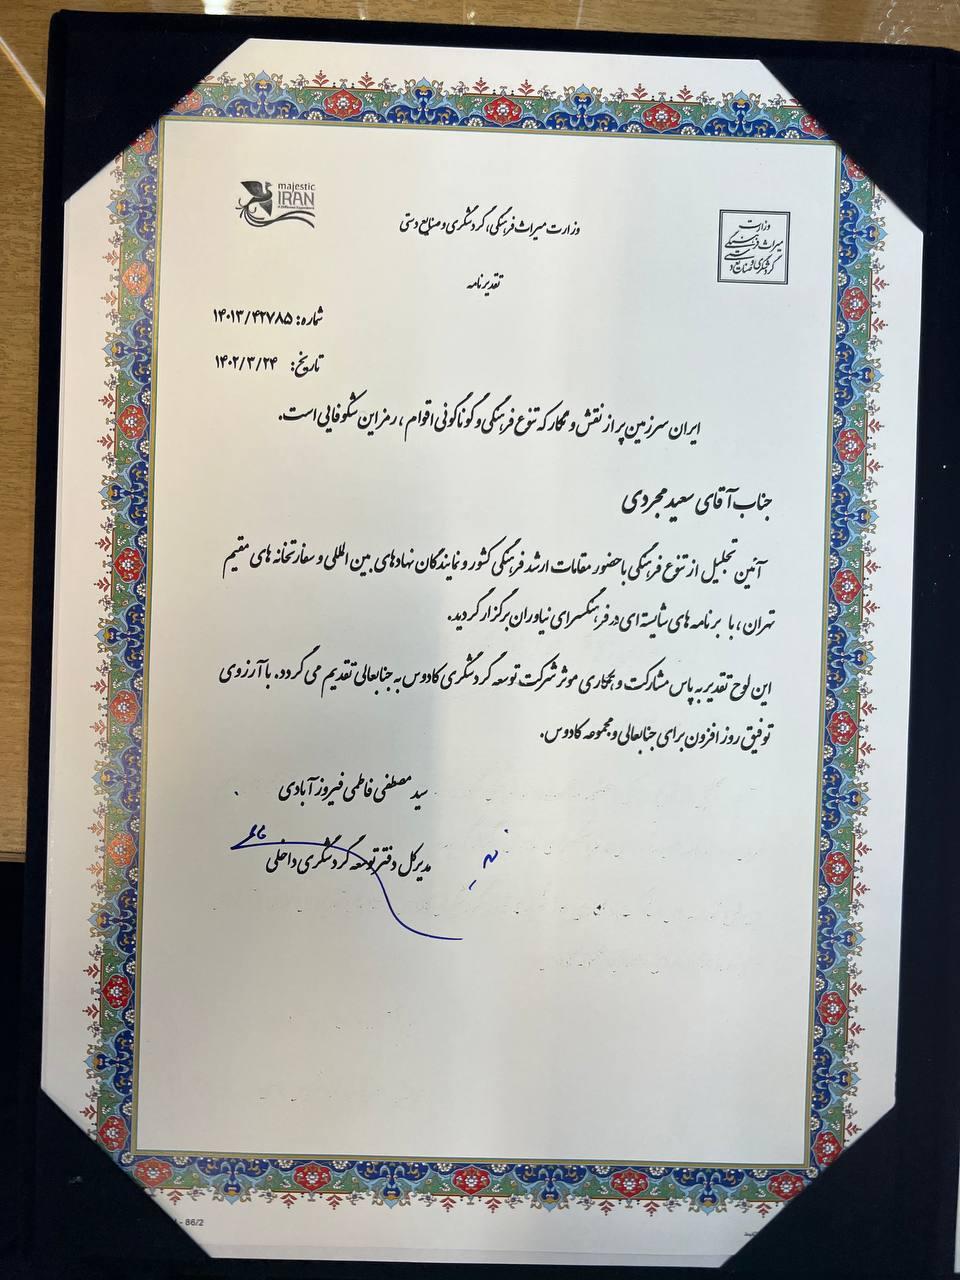 majestic
IRAN
وزارت میراث فرهنگی، گردشگری و صنایع دستی
وزارت
میراث فرهنگی
گردشگری و صنایع دستی
تقدیرنامه
شماره: ۱۴۰۱۳/۴۲۷۸۵
تاریخ: ۱۴۰۲/۳/۲۴
ایران سرزمین پر از نقش و نگار که تنوع فرهنگی و گوناگونی اقوام، رمز این شکوفایی است.
جناب آقای سعید مجردی
آئین تجلیل از تنوع فرهنگی با حضور مقامات ارشد فرهنگی کشور و نمایندگان نهادهای بین المللی و سفارتخانه های مقیم
تهران، با برنامه های شایسته ای در فرهنگسرای نیاوران برگزار گردید.
این لوح تقدیر به پاس مشارکت و همکاری موثر شرکت توسعه گردشگری کادوس به جنابعالی تقدیم می گردد. با آرزوی
توفیق روز افزون برای جنابعالی و مجموعه کادوس.
سید مصطفی فاطمی فیروزآبادی
مدیرکل دفتر توسعه گردشگری داخلی
86/2